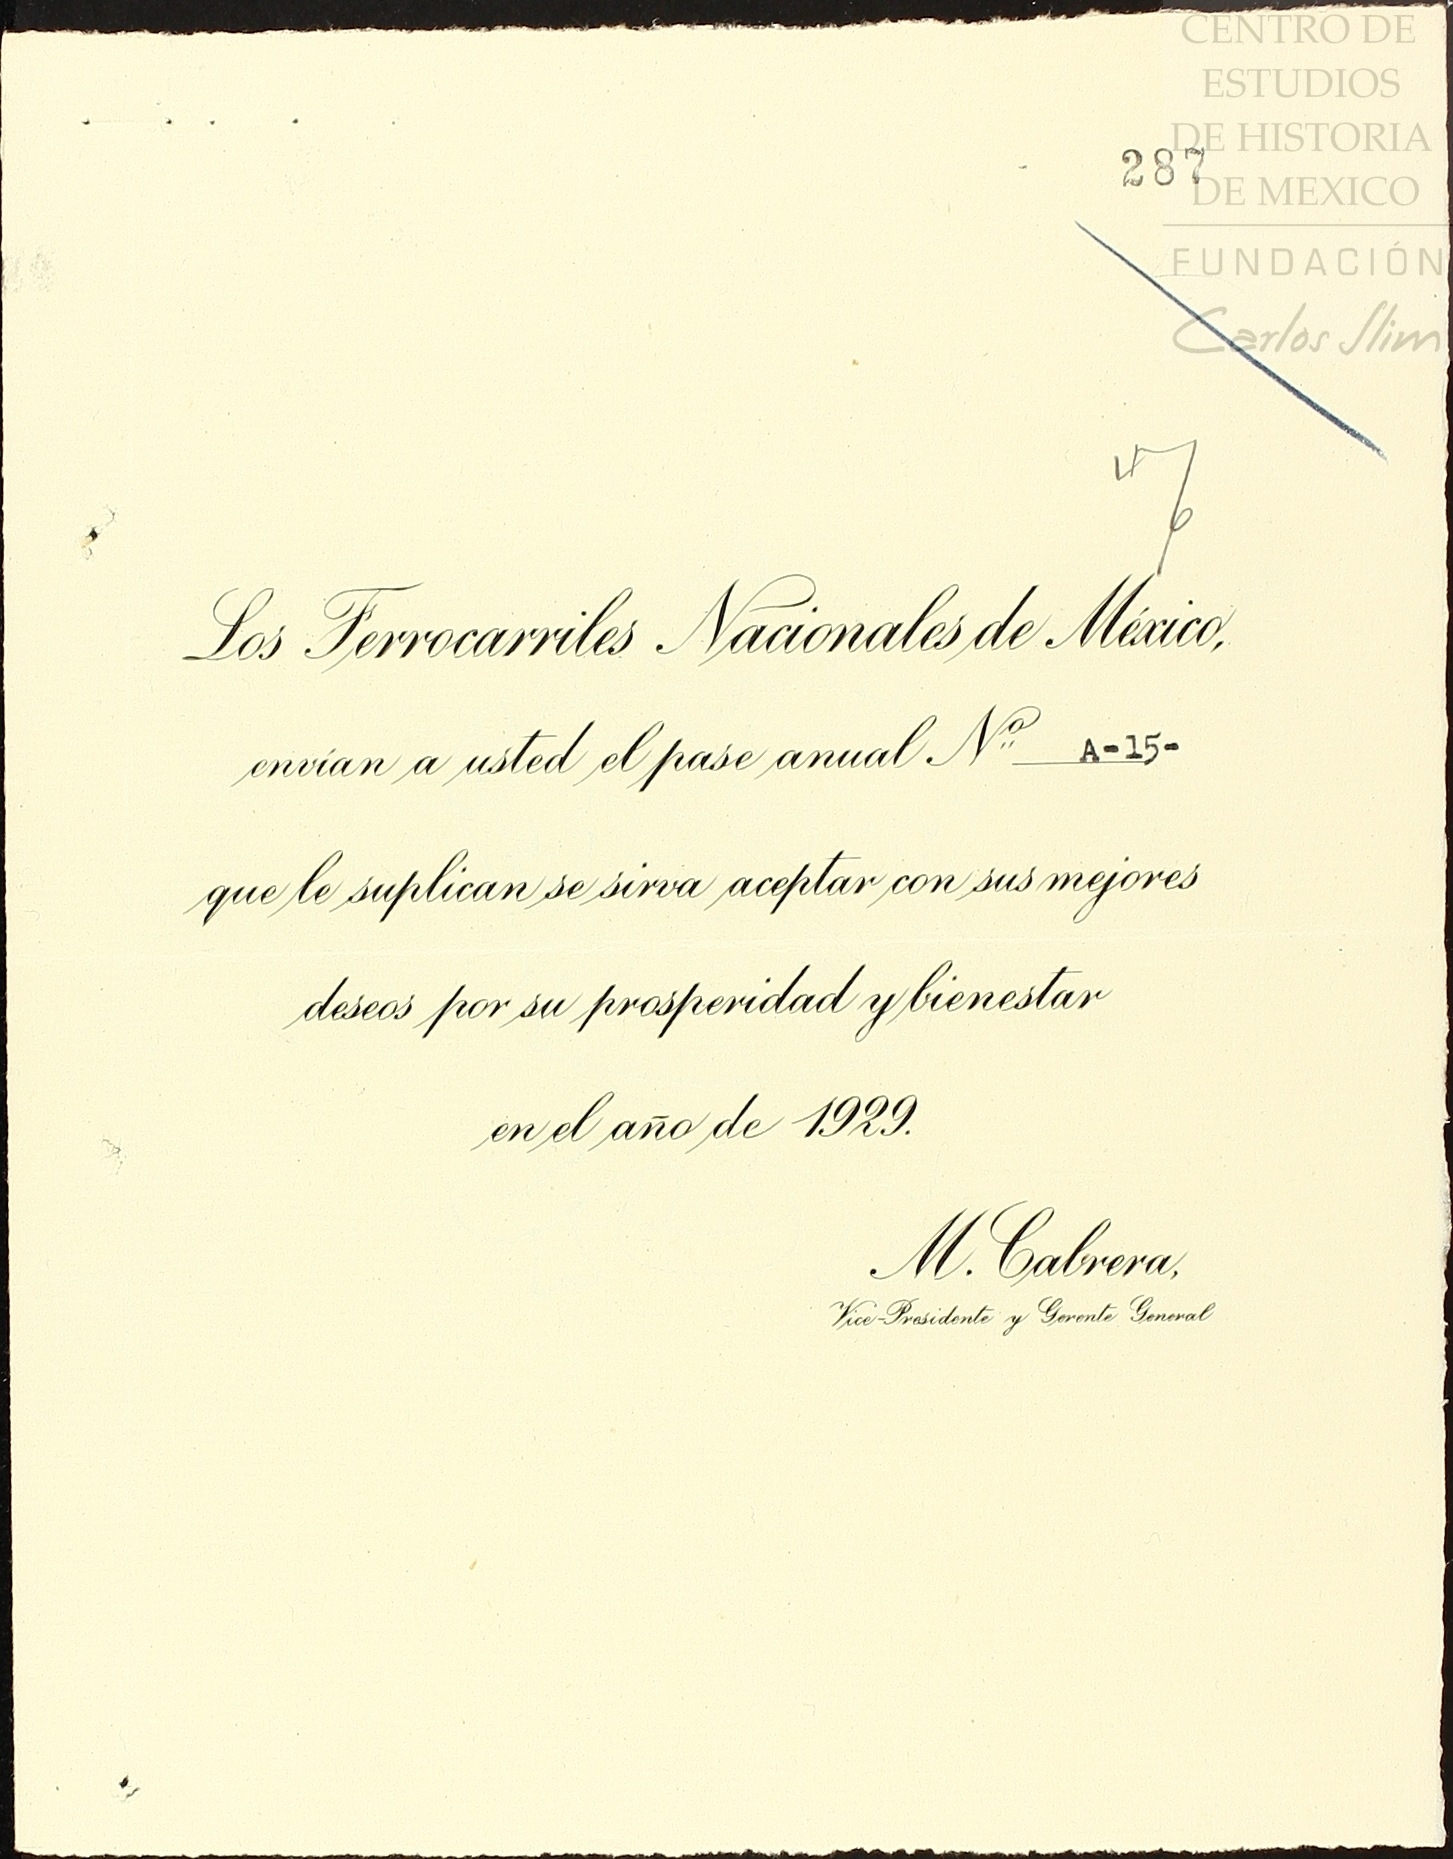 CENTRO DE
ESTUDIOS
DE HISTORIA
287
DE MEXICO
FUNDACIÓN
Carlos Slim
Los Ferrocarriles Nacionales de México,
envían a usted el pase anual Nº A-15-
que le suplican se sirva aceptar con sus mejores
deseos por su prosperidad y bienestar
en el año de 1929.
M. Cabrera,
Vice-Presidente y Gerente General